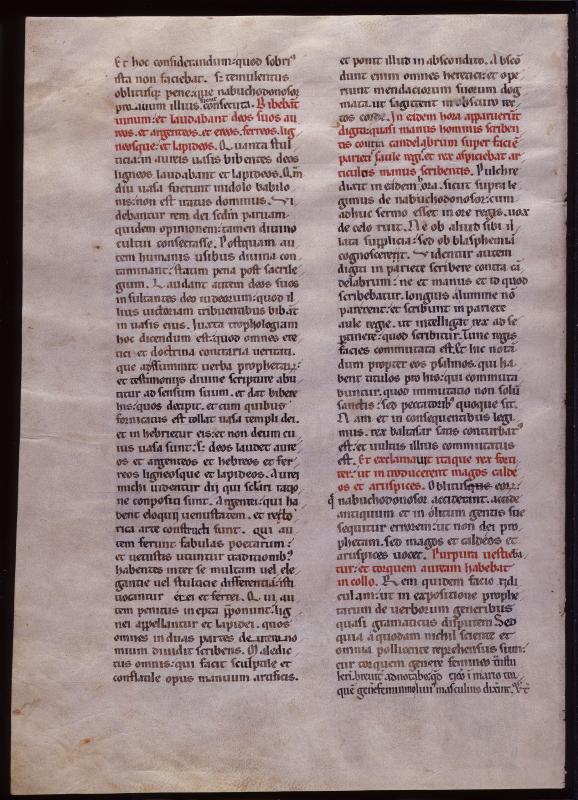 Et hoc considerandum: quod sobri᾽
ista non faciebat. s: temulentus
oblitusq: pene: que nabuchodonosor
pro auum illius consecuta. Bibebāt
uinum: et laudabant deos suos au
reos. et argenteos. et ereos. ferreos. lig
neosque: et lapideos. Quanta stul
ticia: in aureis uasis bibentes deos
ligneos laudabant et lapideos. Qm̄
diu uasa fuerunt in idolo babilo
nis: non est iratus dominus. Vi
debantur rem dei scdm prauam
quidem opinionem: tamen diuino
cultui consecrasse. Postquam au
tem humanis usibus diuina con
taminant: statim pena post sacrile
gium. Laudant autem deos suos
insultantes deo iudeorum: quod il
lius uictoriam tribuentibus bibāt
in uasis eius. Iuxta trophologiam
hoc dicendum est: quod omnes ere
tici et doctrina contraria ueritati.
que assummit uerba prophetarum:
et testimoniis diuine scripture abu
titur ad sensum suum. et dat bibere
his: quos decipit. et cum quibus
fornicatus est. tollat uasa templi dei.
et in hebrietur eis: et non deum cu
ius uasa sunt: s: deos laudet aure
os et argenteos et hebreos et fer
reos ligneosque et lapideos. Aurei
michi uidentur dii qui sclari ratio
ne conpositi sunt. Argentei: qui ha
bent eloquii uenustatem. et retho
rica arte constructi sunt. qui au
tem ferunt fabulas poetarum:
et uetustis utuntur traditionib᾽
habentes inter se multam uel ele
gantie uel stulticie differentiā: isti
uocantur erei et ferrei. Qui au
tem penitus inepta pponunt: lig
nei appellantur et lapidei. quos
omnes in duas partes deuterono
mium diuidit scribens. Maledic
tus omnis: qui facit sculptile et
conflatile opus manuum artificis.
et ponit illud in abscondito. Absco
dunt enim omnes heretici: et ope
riunt mendaciorum suorum dog
mata. ut sagittent in obscuro rec
tos corde. In eadem hora apparuerūt
digiti: quasi manus hominis scriben
tis contra candelabrum super facie
parieti saule regi. et rex aspiciebat ar
ticulos manus scribentis. Pulchre
dixit in eadem hora. sicut supra le
gimus de nabuchodonosor: cum
adhuc sermo esset in ore regis. uox
de celo ruit. Ne ob aliud sibi il
lata supplicia: sed ob blasphemiā
cognoscerent. Videntur autem
digiti in pariete scribere contra cā
delabrum: ne et manus et id quod
scribebatur. longius a lumine nō
parerent: et scribunt in pariete
aule regie. ut intelligat rex ad se
ptinere: quod scribitur. Tunc regis
facies commutata est. Et hic notā
dum propter eos psalmos. qui ha
bent titulos pro his: qui commuta
buntur. quod inmutatio non solū
sanctis: sed peccatorib᾽ quoque sit.
Nam et in consequentibus legi
mus. rex baltasar satis conturbat᾽
est: et uultus illius commutatus
est. Et exclamauit itaque rex forti
ter: ut introducerent magos calde
os et aruspices. Oblitusque eorum:
q̄ nabuchodonosor acciderant. accide
antiquum et in olitum gentis sue
sequitur errorem: ut non dei pro
phetam. sed magos et caldeos et
aruspices uocet. Purpura uestieba
tur: et torquem auream habebat
in collo. Rem quidem facio ridi
culam: ut in expositione prophe
tarum de uerborum generibus
quasi gramaticus disputem. Sed
quia a quodam nichil sciente et
omnia pollicente reprehensus sum:
cur torquem genere feminino